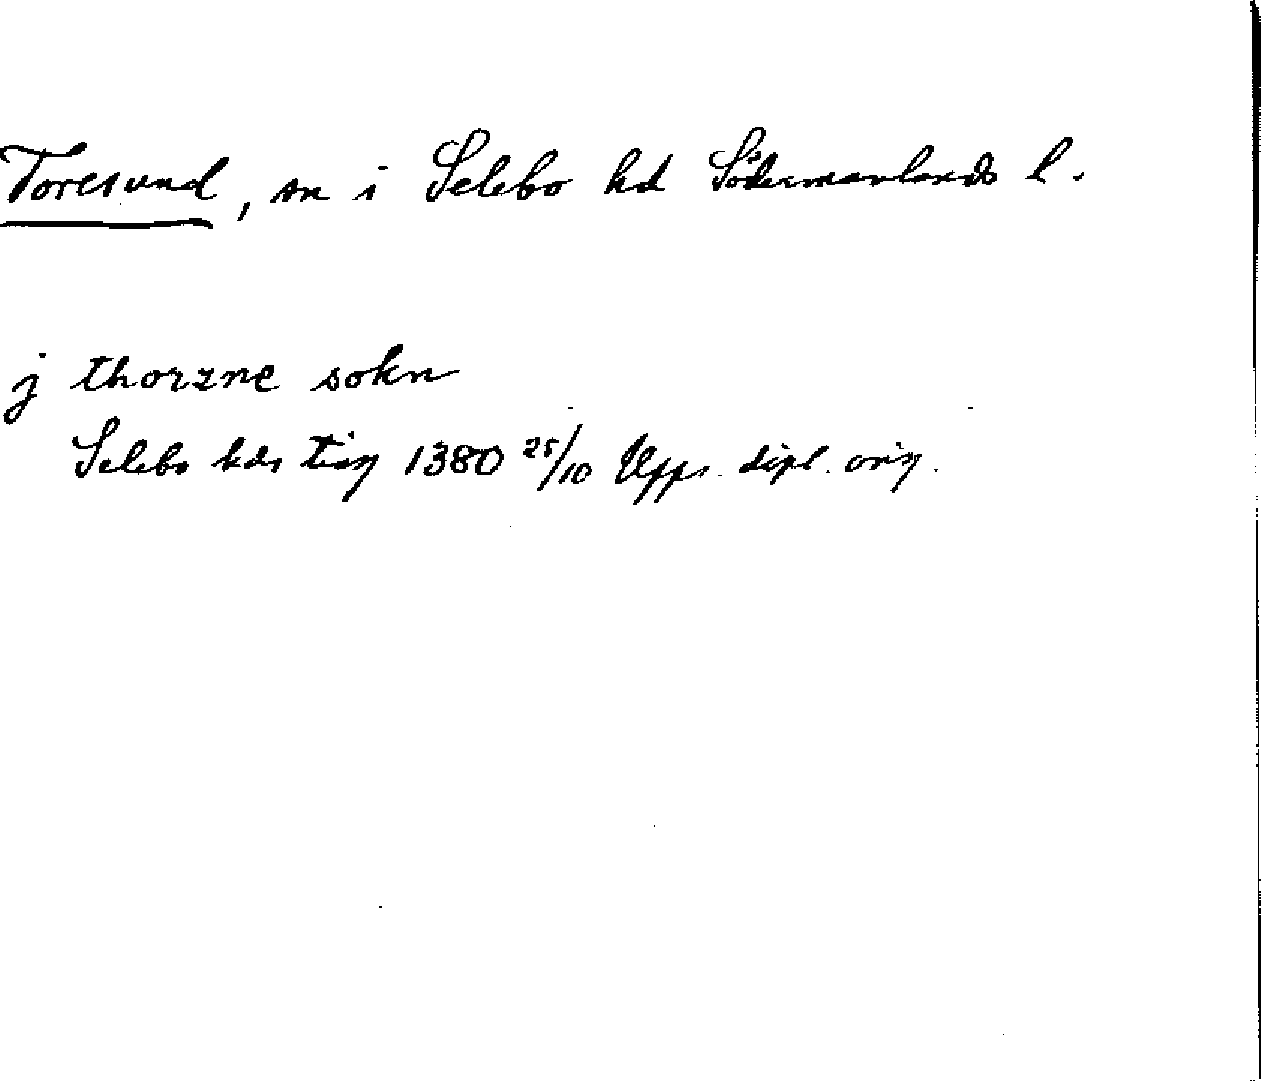 Toresund, sn i Selebo hd Södermanlands l.
j thorzne sokn
Selebo hds ting 1380 25/10 Upps. dipl. orig.